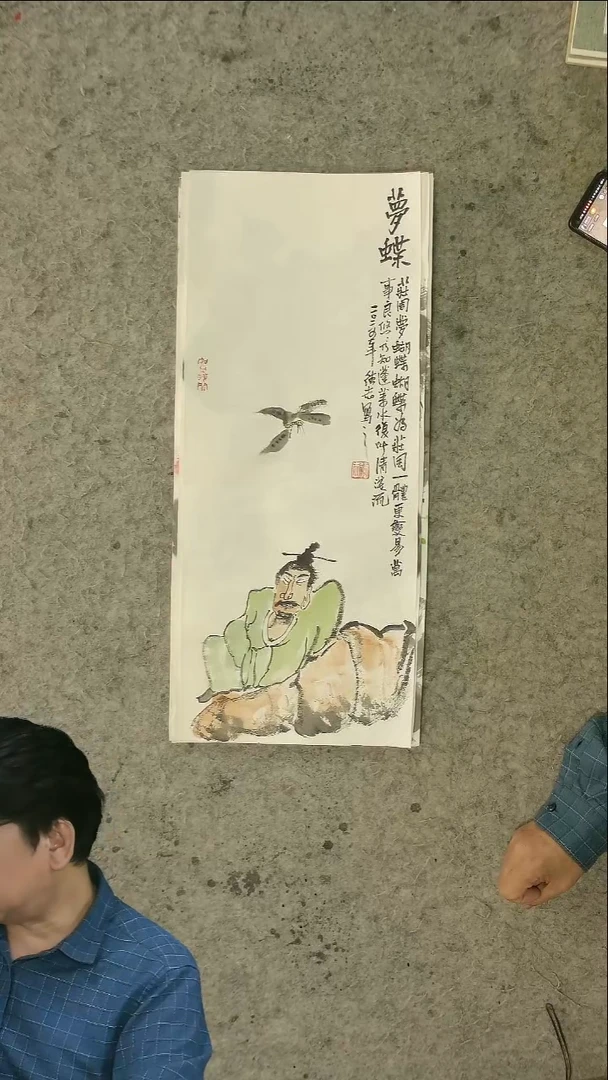 夢蝶
莊周夢蝴蝶蝴蝶為莊周一體更變易萬
事良悠々乃知蓬萊水復叫清淺流
二〇二五年
寫之